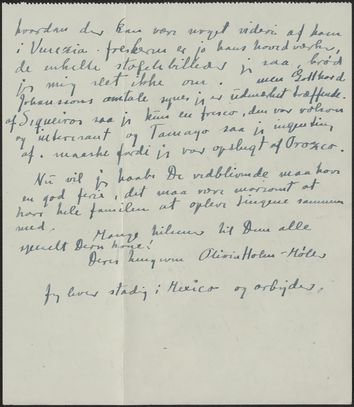 hvordan der kan være noget videre af ham
i Venezia - freskerne er jo hans hovedværker,
de enkelte staffelibilleder jeg saa, brød
jeg mig slet ikke om. men Gotthard
Johanssons omtale synes jeg er udmærket træffende.
af Siqueiros saa jeg kun en fresco, den var voldsom
og interessant og Tamayo saa jeg ingenting
af. maaske fordi jeg var opslugt af Orozco.
Nu vil jeg haabe De vedblivende maa have
en god ferie, det maa være morsomt at
have hele familien at opleve tingene sammen
med. Mange hilsener til Dem alle
specielt Deres kone!
Deres hengivne Olivia Holm-Møller
Jeg lever stadig i Mexico og arbejder.